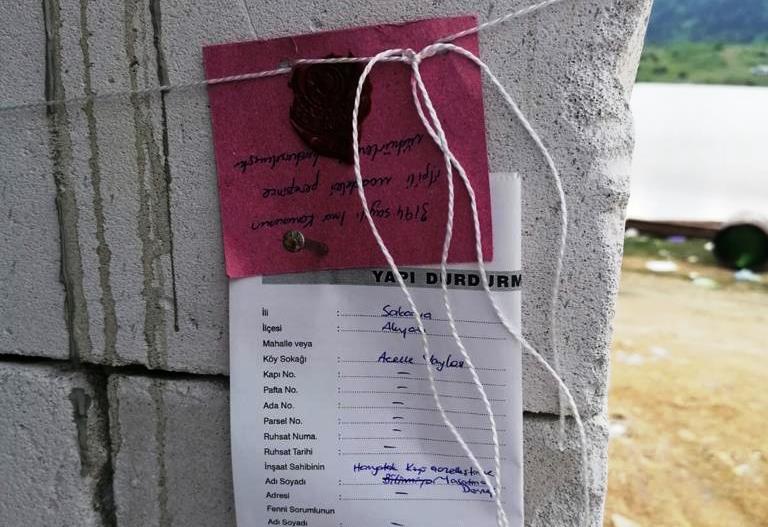 3194 sayılı İmar Kanununun
maddeleri gereğince
mühürlenerek durdurulmuştur
YAPI DURDURM
İli : Sakarya
İlçesi : Akyazı
Mahalle veya
Köy Sokağı : Acelle Yaylası
Kapı No. : —
Pafta No. : —
Ada No. : —
Parsel No. : —
Ruhsat Numa. : —
Ruhsat Tarihi : —
İnşaat Sahibinin
Adı Soyadı : Yaşatma
Adresi : —
Fenni Sorumlunun
Adı Soyadı : —